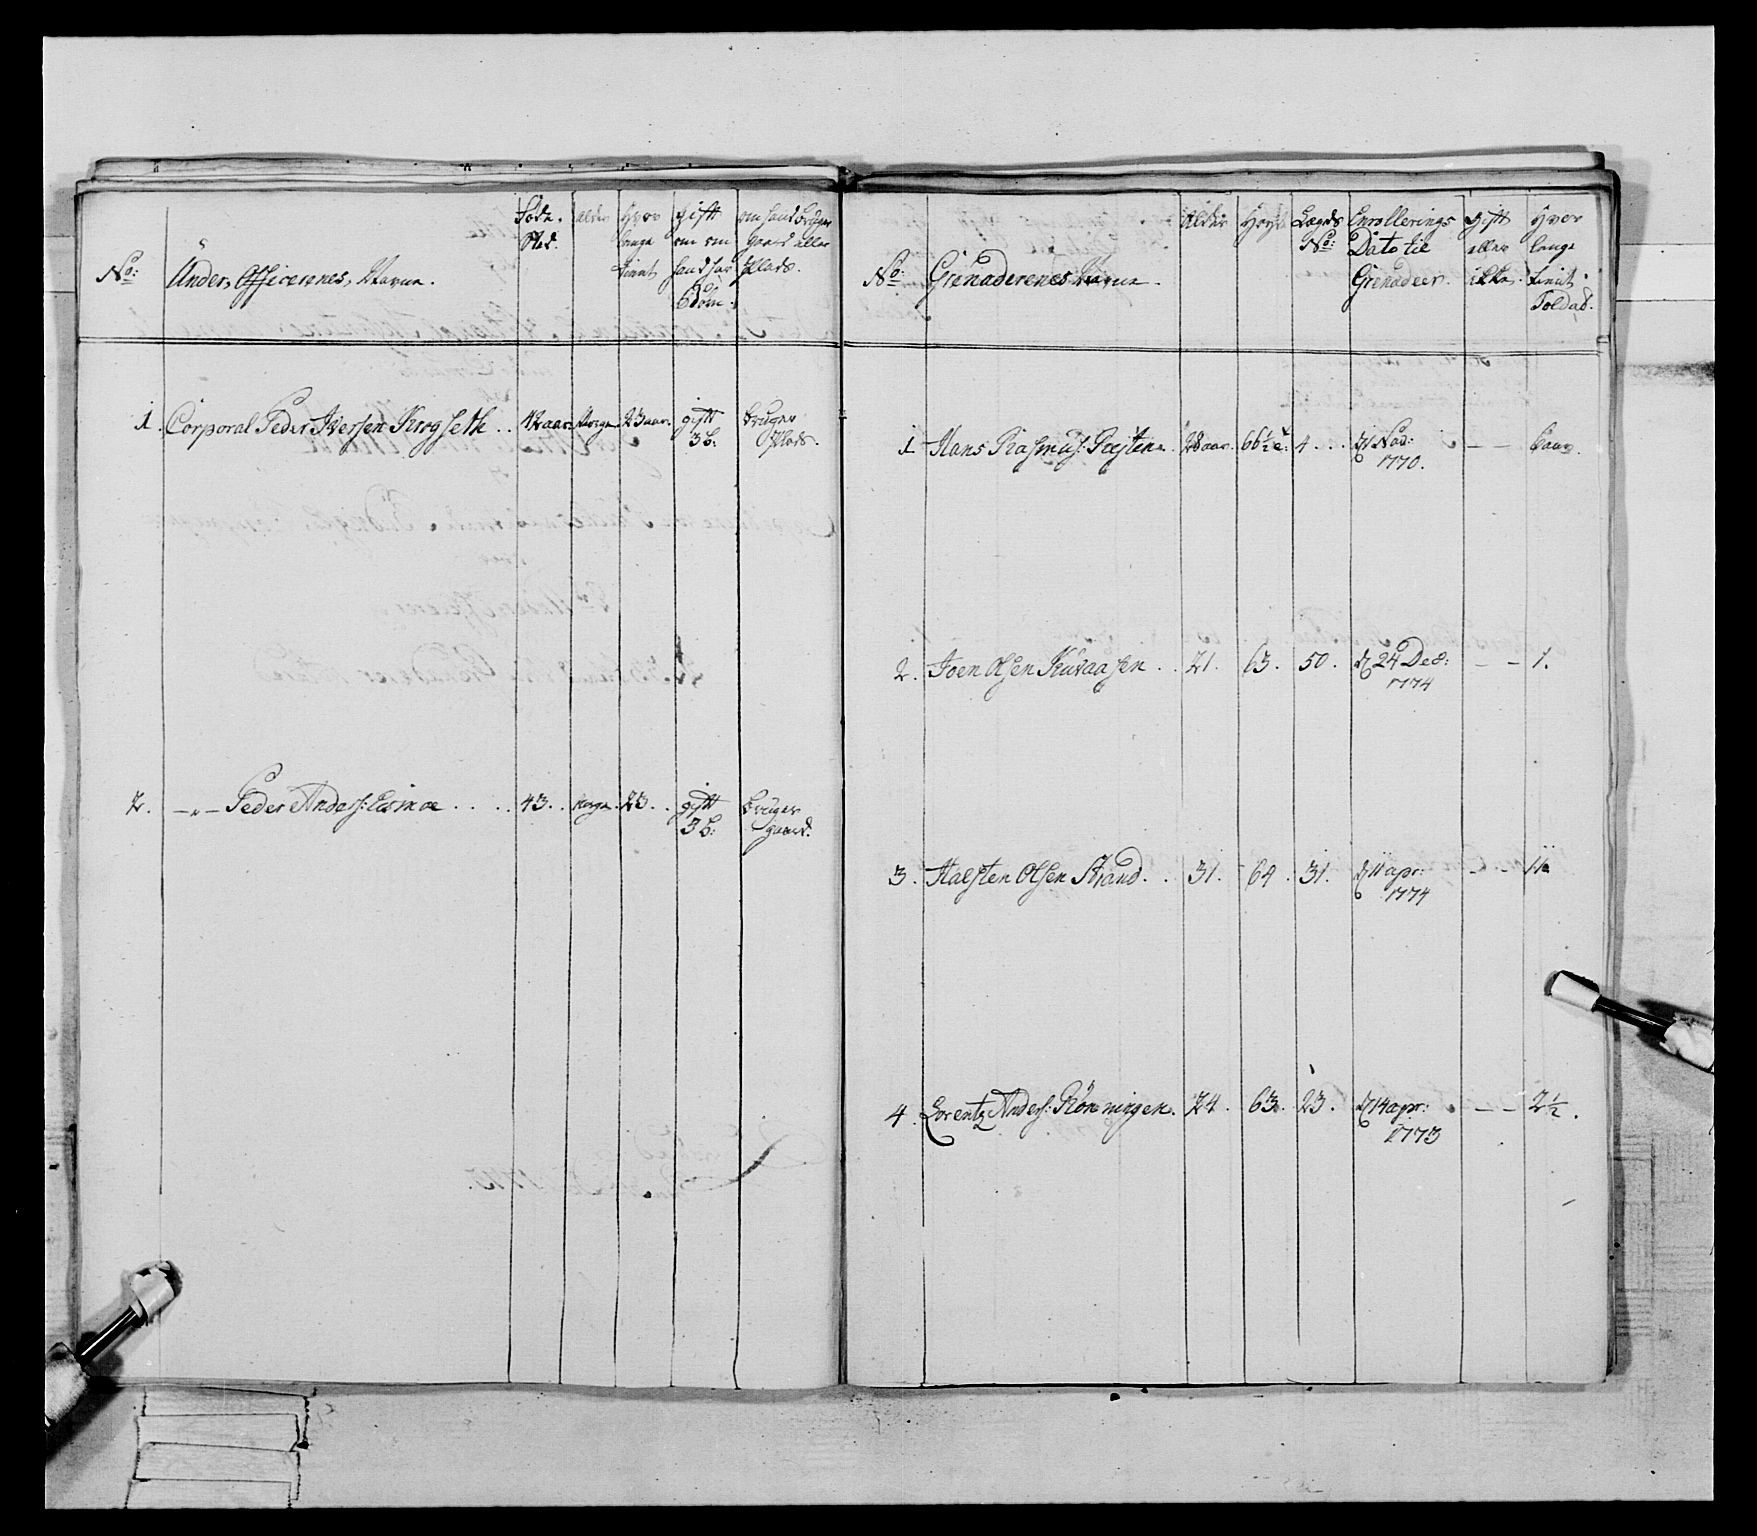 No: Under-Officerenes Navne. Føde Sted. alder Hvor lenge tient gift om om hand har Børn. om hand bruger gaard eller Plads.
1. Corporal Peder Iversen Krogseth .. 42 aar. Norge. 23 aar. gift 3 b: bruger Plads.
2. —"— Peder Anders: .... 43. Norge. 23. gift 3 b: bruger gaard.
No: Grenaderenes Navne. Alder Høyde Lægds No: Enrollerings Dato til Grenadeer. gift eller ikke. Hver lenge tient Soldat.
1 Hans Rasmus: 28 aar. 66½ 4... Nov: 1770. — — 6 aar.
2. Joen Olsen .. 21. 63. 50. 24 Dec: 1774 — — 1.
3. Halsten Olsen Strand. . 31. 64. 31. 11 apr: 1774 — — 11
4. Lorentz Anders: Rønningen. 24. 63. 23. 14 apr: 1773 — — 2½.